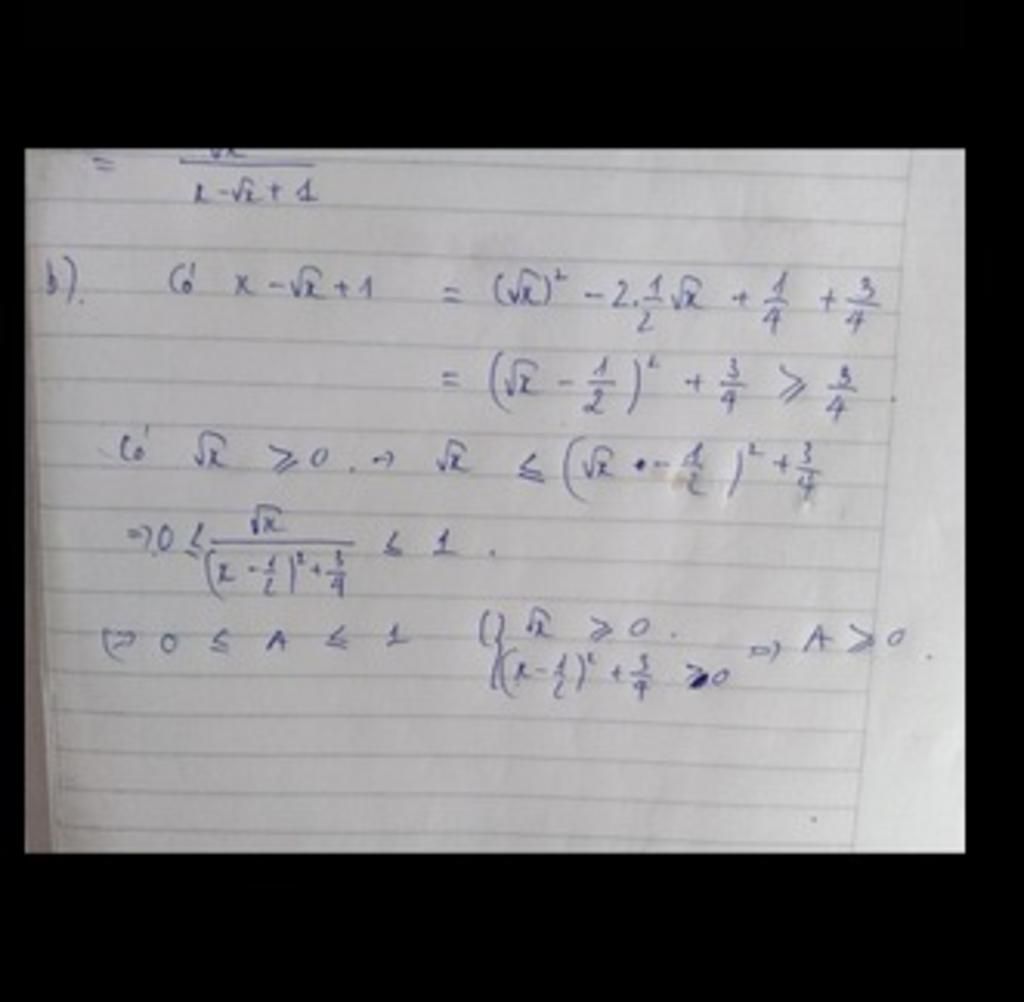 = √x / (x - √x + 1)
b). Có x - √x + 1 = (√x)² - 2.1/2 √x + 1/4 + 3/4
= (√x - 1/2)² + 3/4 ⩾ 3/4.
Có √x ⩾ 0. → √x ≤ (√x - 1/2)² + 3/4
⇒ 0 ≤ √x / ((x - 1/2)² + 3/4) ≤ 1.
⇔ 0 ≤ A ≤ 1 ( { √x ⩾ 0. ⇒ A ⩾ 0.
(x - 1/2)² + 3/4 ⩾ 0